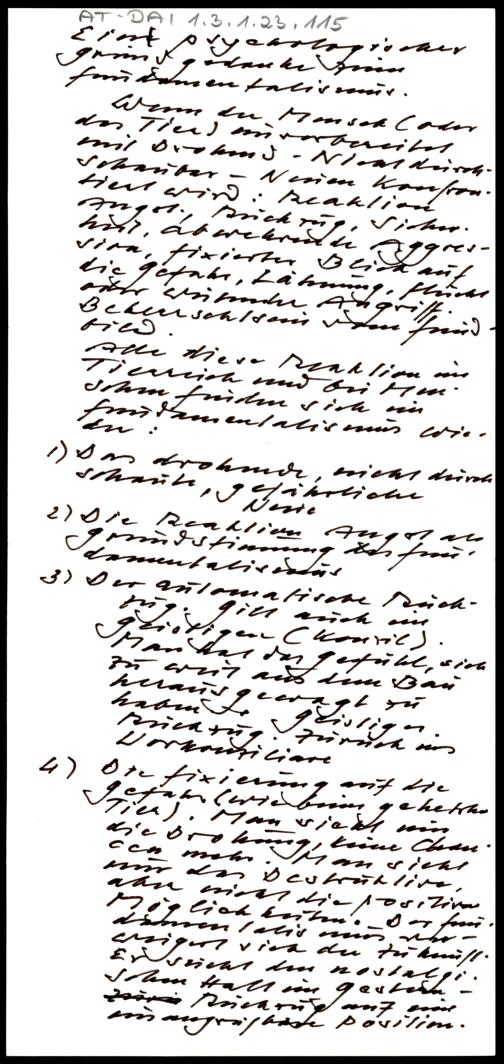 AT-DAI 1.3.1.23.115
Ein psychologischer
Grundgedanke zum
Fundamentalismus.
Wenn der Mensch (oder
das Tier) unvorbereitet
mit Drohend-Nichtdurch-
schaubar-Neuen konfron-
tiert wird: Reaktion
Angst, Rückzug, Sicher-
heit, abwehrende Aggres-
sion, fixierter Blick auf
die Gefahr, Lähmung, Flucht
oder wütender Angriff.
Beherrschtsein vom Feind-
bild.
Alle diese Reaktion im
Tierreich und bei Men-
schen finden sich im
Fundamentalismus wie-
der:
1) Das drohende, nicht durch
schaute, gefährliche
Neue
2) Die Reaktion Angst als
Grundstimmung des Fun-
damentalismus
3) Der automatische Rück-
zug. Gilt auch im
Geistigen (Konzil).
Man hat das Gefühl, sich
zu weit aus dem Bau
herausgewagt zu
haben. Geistiger
Rückzug: zurück ins
Vorkonziliare
4) Die Fixierung auf die
Gefahr (wie beim gehetzten
Tier). Man sieht nur
die Drohung, keine Chan-
cen mehr. Man sieht
nur das Destruktive,
aber nicht die positiven
Möglichkeiten. Der Fun-
damentalismus ver-
weigert sich der Zukunft.
Er sucht den nostalgi-
schen Halt im Gestern –
Rückzug auf eine
unangreifbare Position.